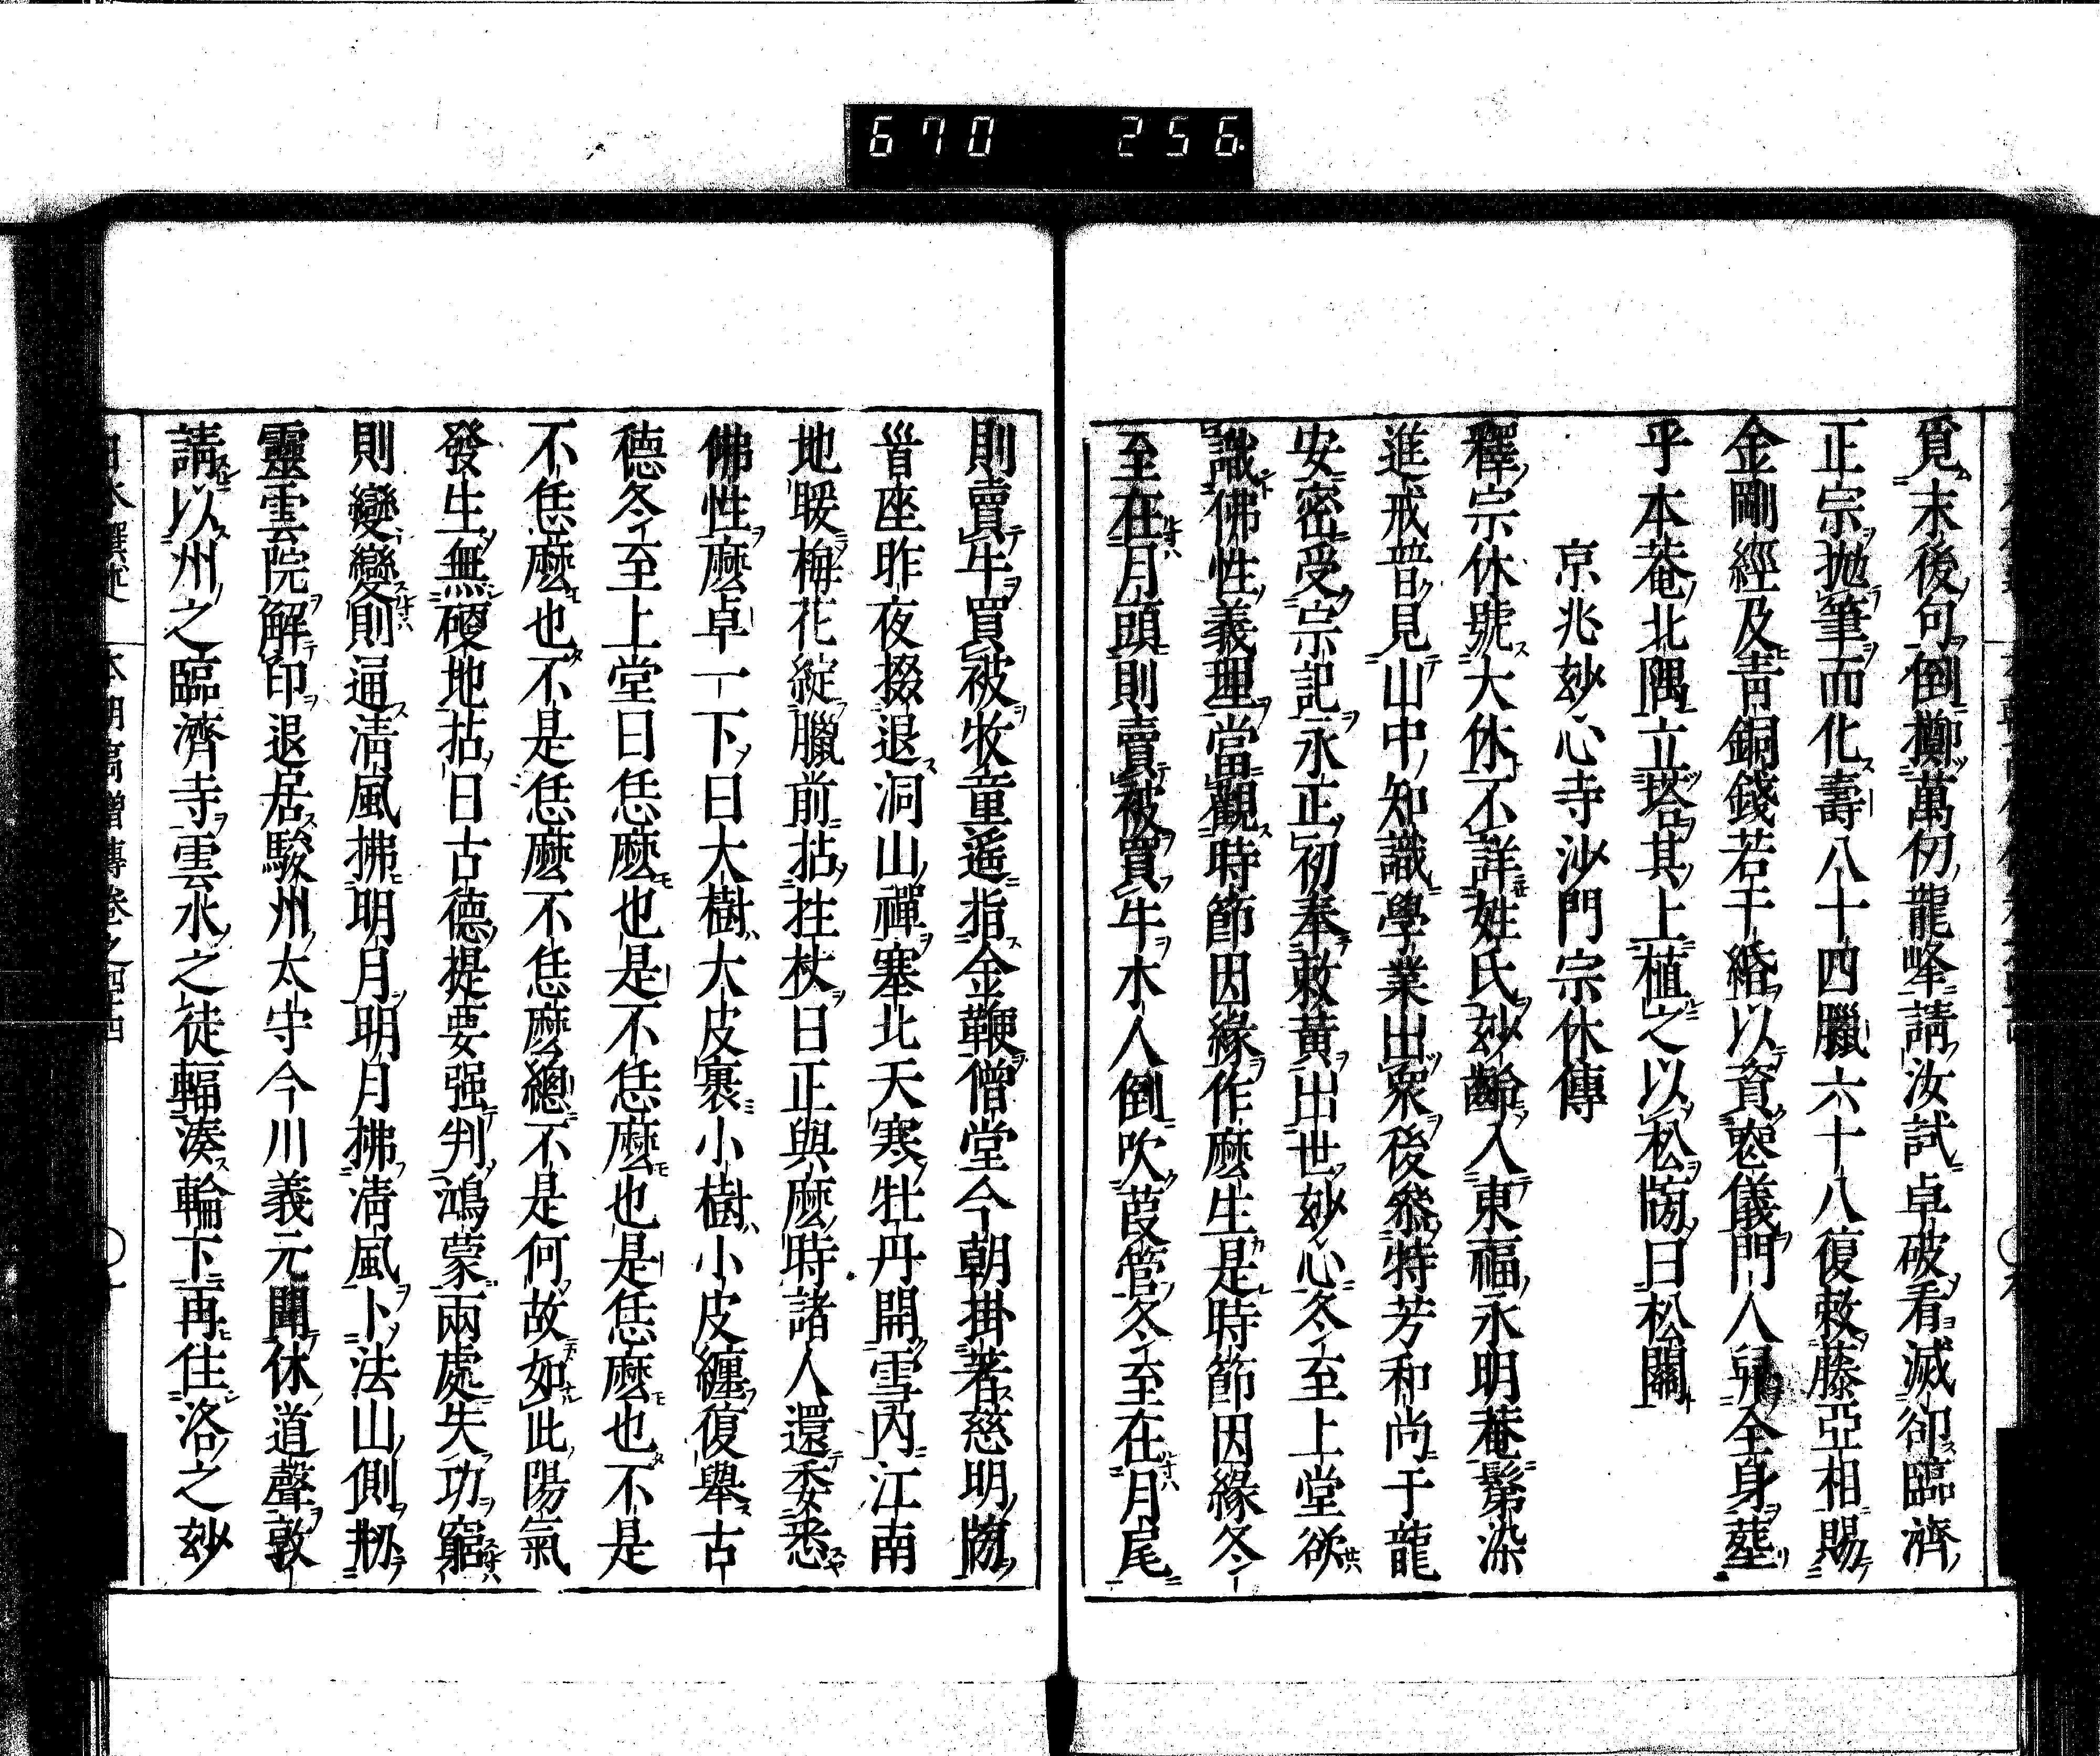 670 256
覓末後句倒擲萬仞龍峰請汝試卓破看滅卻臨濟
正宗拋筆而化壽八十四臘六十八復敕藤亞相賜
金剛經及青銅錢若干緡以資窆儀門人舁全身塟
乎本菴北隅立塔其上植之以松牓曰松關
京兆妙心寺沙門宗休傳
釋宗休號大休不詳姓氏妙齡入東福永明菴鬀染
進戒普見山中知識學業出衆後叅特芳和尚于龍
安密受宗記永正初奉敕黃出世妙心冬至上堂欲
識佛性義理當觀時節因緣作麼生是時節因緣冬
至在月頭則賣被買牛木人倒吹葭管冬至在月尾
則賣牛買被牧童遙指金鞭僧堂今朝掛著慈明牓
首座昨夜掇退洞山禪塞北天寒牡丹開雪内江南
地暖梅花綻臘前拈拄杖曰正與麼時諸人還委悉
佛性麼卓一下曰大樹大皮裹小樹小皮纏復舉古
德冬至上堂曰恁麼也是不恁麼也是恁麼也不是
不恁麼也不是恁麼不恁麼總不是何故如此陽氣
發生無硬地拈曰古德提要强判鴻蒙兩處失功窮
則變變則通清風拂明月明月拂清風卜法山側剏
靈雲院解印退居駿州太守今川義元聞休道聲敦
請以州之臨濟寺雲水之徒輻湊輪下再住洛之妙
日本撰述 本朝高僧傳卷之四十四